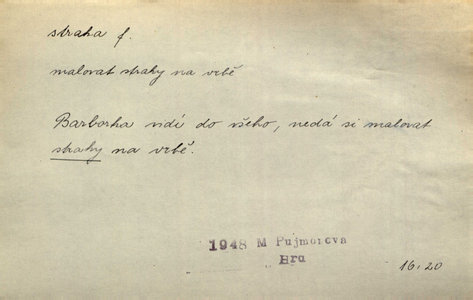 straka f.
malovat straky na vrbě
Barborka vidí do všeho, nedá si malovat
straky na vrbě.
1948 M Pujmorova
Hra
16. 20